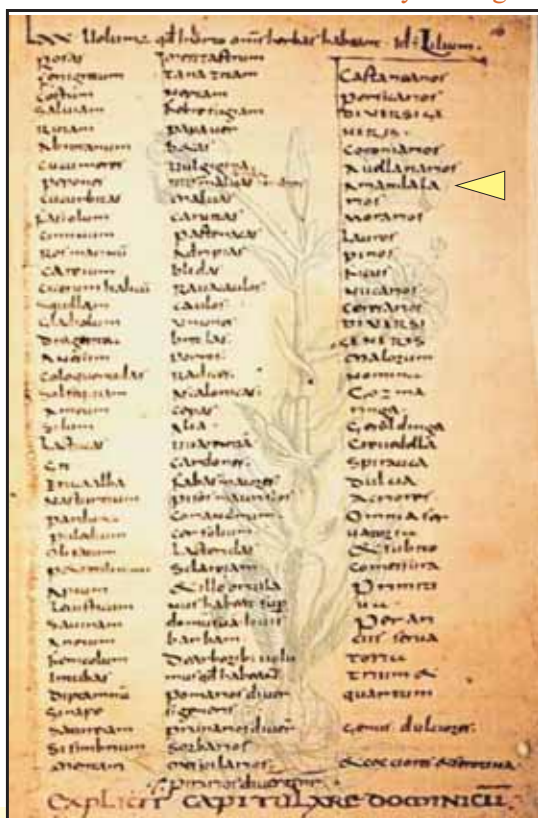 LXX. Volumus qd In horto omnes herbas habeant. Id est Lilium.
Rosas
Fenigrecum
Costum
Salviam
Rutam
Abrotanum
Cucumeres
Pepones
Cucurbitas
Fasiolum
Ciminum
Ros marinū
Careium
Squillam
Gladiolum
Anesum
Coloquentidas
Solsequiam
Ameum
Silum
Lactucas
Git
Eruca alba
Nasturtium
Parduna
Puledium
Olisatum
Apium
Levisticum
Savinam
Anetum
Fenicolum
Intubas
Diptamnū
Sinape
Satureiam
Sisimbrium
Mentam
Mentastrum
Neptam
Febrefugiam
Papaver
Betas
Vulgigina
Malvas
Carvitas
Pastenacas
Adripias
Blidas
Ravacaulos
Caulos
Uniones
Britlas
Porros
Radices
Ascalonicas
Cepas
Alia
Warentiā
Cardones
Fabas maiores
Pisos mauriscos
Coriandrum
Cerfolium
Lacteridas
Sclareiam
Et ille ortula
nus habeat sup
domum sua Iovis
barbam
De arboribus volu
mus qd habeant
pomarios diver
si generis
prunarios diver
Sorbarios
Mespilarios
Pirarios diversi gener
Castanearios
Persicarios
DIVERSI GE
NERIS
Avellanarios
Amandala
rios
Morarios
Lauros
Pinos
Ficus
Nucarios
Ceresarios
DIVERSI
GENERIS
Malorum
Nomina
Gozma
ringa
Geroldinga
Crevedella
Spirauca
Dulcia
Acriores
Omnia ser
vatoria
Et subito
Comessura
Primiti
va
Per ar
cis serva
Trium et
quartum
Genus dulciores
et cocciores et serotina
EXPLICIT CAPITULARE DOMINICŪ